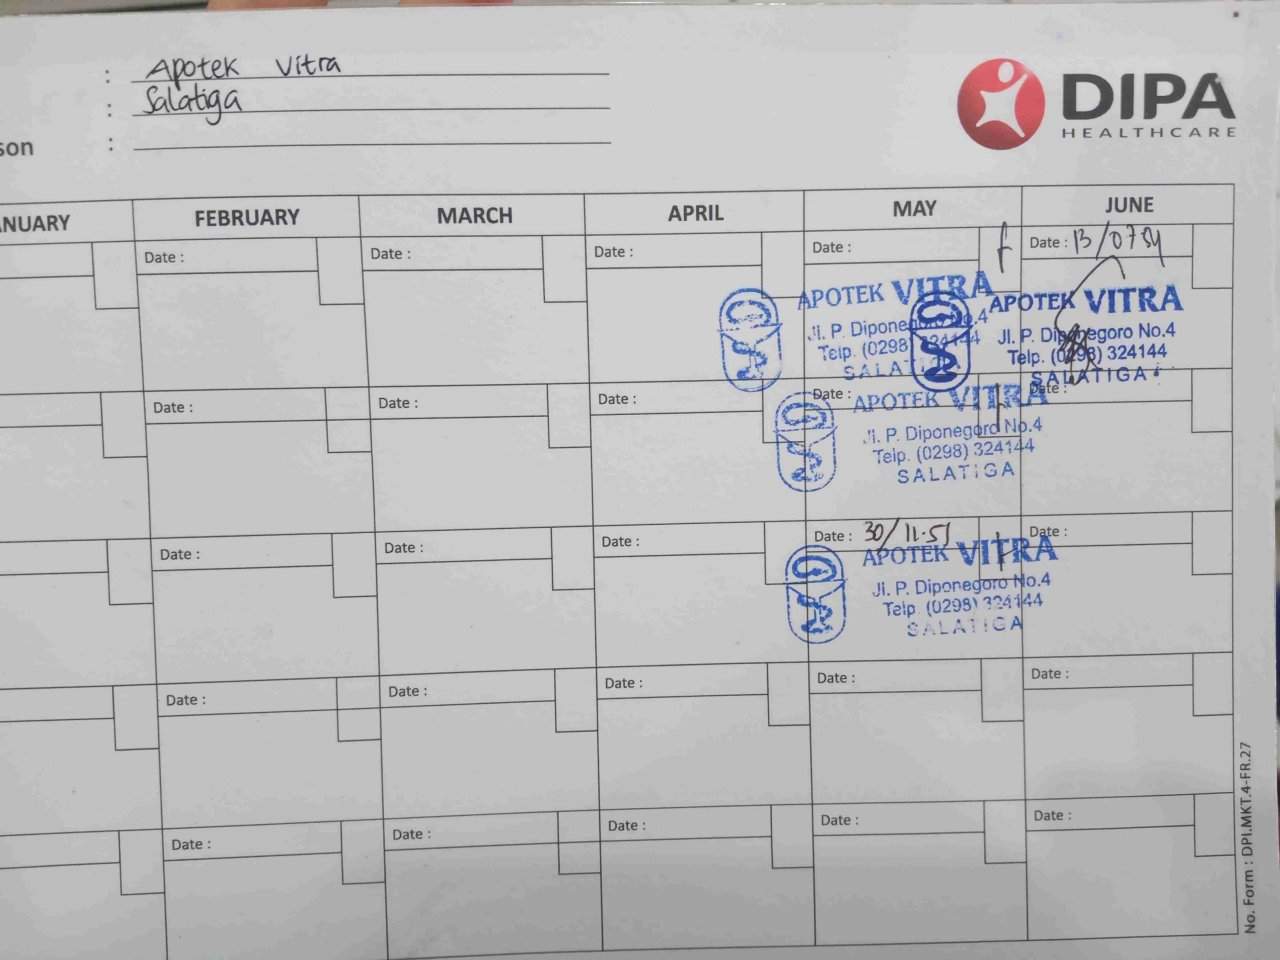 : Apotek Vitra
: Salatiga
son :
DIPA
HEALTHCARE
ANUARY FEBRUARY MARCH APRIL MAY JUNE
Date : Date : Date : Date : Date : 13/07
APOTEK VITRA
Jl. P. Diponegoro No.4
Telp. (0298) 324144
SALATIGA
APOTEK VITRA
Jl. P. Diponegoro No.4
Telp. (0298) 324144
SALATIGA
Date : Date : Date : Date : Date :
APOTEK VITRA
Jl. P. Diponegoro No.4
Telp. (0298) 324144
SALATIGA
Date : Date : Date : Date : 30/11.51 Date :
APOTEK VITRA
Jl. P. Diponegoro No.4
Telp. (0298) 324144
SALATIGA
Date : Date : Date : Date : Date :
Date : Date : Date : Date : Date :
No. Form : DPI.MKT.4-FR.27